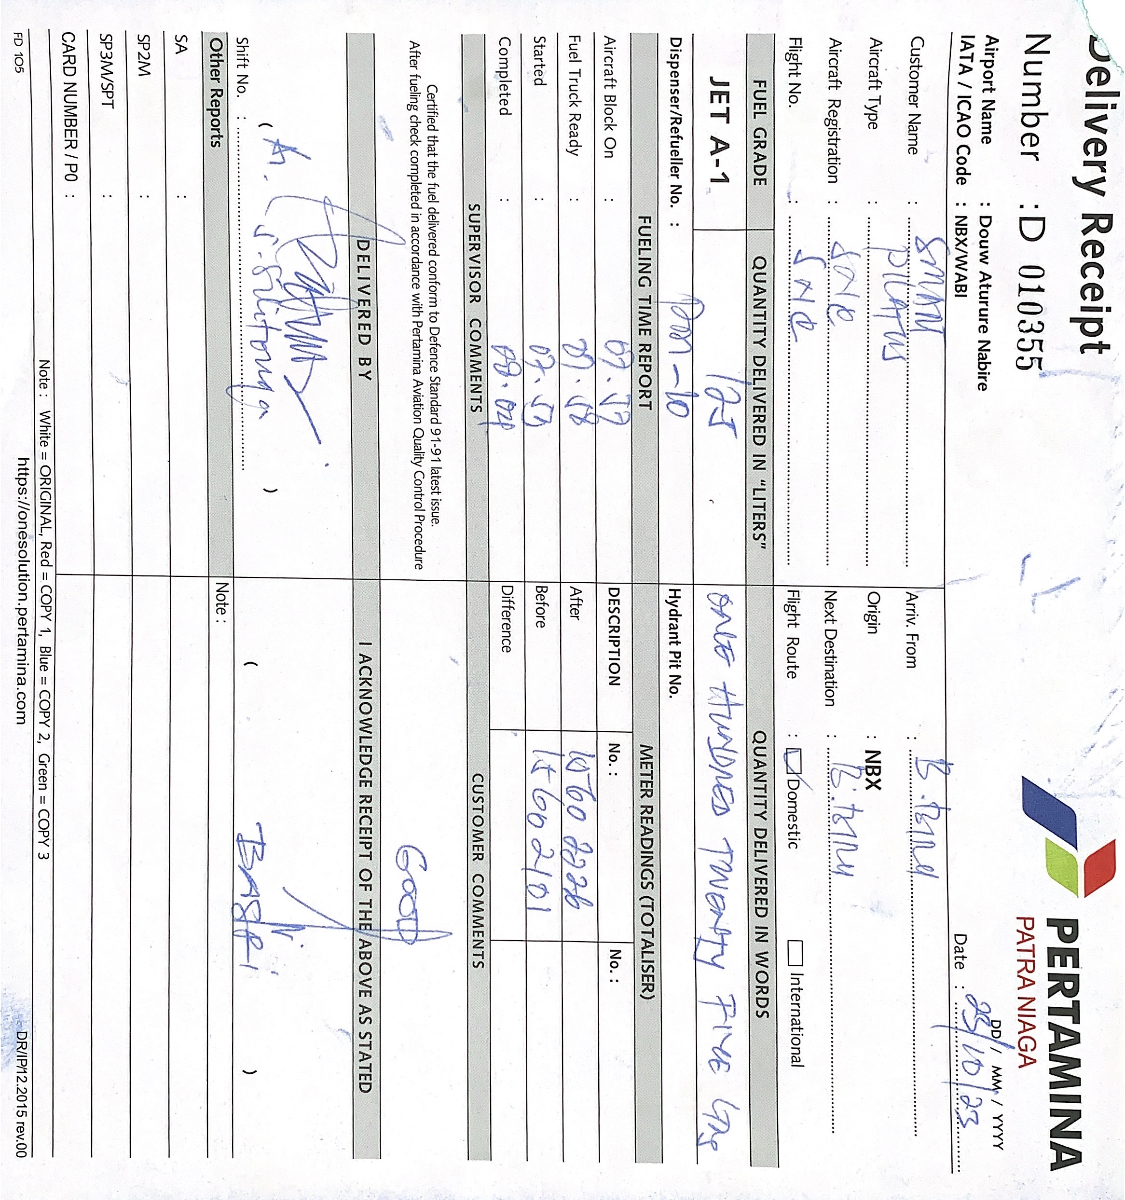 Delivery Receipt
PERTAMINA
PATRA NIAGA
Number : D 010355
DD / MM / YYYY
Airport Name : Douw Aturure Nabire
IATA / ICAO Code : NBX/WABI
Date : 25/10/23
Customer Name : SMART
Arriv. From :
Aircraft Type : PILATUS
Origin : NBX
Aircraft Registration : SNC
Next Destination :
Flight No. : SNC
Flight Route : Domestic International
FUEL GRADE QUANTITY DELIVERED IN "LITERS" QUANTITY DELIVERED IN WORDS
JET A-1 125 ONE HUNDRED TWENTY FIVE
Dispenser/Refueller No. : Hydrant Pit No.
FUELING TIME REPORT METER READINGS (TOTALISER)
Aircraft Block On : 07.57
DESCRIPTION No. : No. :
Fuel Truck Ready : 07.58
After 15602226
Started : 07.59
Before 15602101
Completed : 08.04
Difference
SUPERVISOR COMMENTS CUSTOMER COMMENTS
Certified that the fuel delivered conform to Defence Standard 91-91 latest issue.
After fueling check completed in accordance with Pertamina Aviation Quality Control Procedure
GOOD
DELIVERED BY I ACKNOWLEDGE RECEIPT OF THE ABOVE AS STATED
( )
( BASRI )
Shift No. :
Other Reports
Note :
SA :
SP2M :
SP3M/SPT :
CARD NUMBER / P0 :
Note : White = ORIGINAL, Red = COPY 1, Blue = COPY 2, Green = COPY 3
FD 105
https://onesolution.pertamina.com
DR/IP/12.2015 rev.00